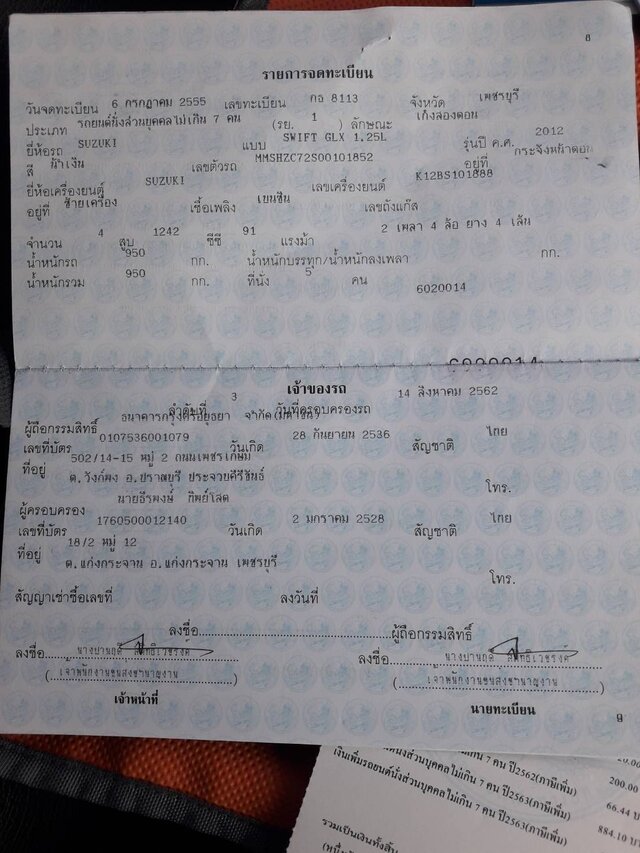 8
รายการจดทะเบียน
วันจดทะเบียน 6 กรกฎาคม 2555 เลขทะเบียน กอ 8113 จังหวัด เพชรบุรี
ประเภท รถยนต์นั่งส่วนบุคคลไม่เกิน 7 คน (รย. 1 ) ลักษณะ เก๋งสองตอน
ยี่ห้อรถ SUZUKI แบบ SWIFT GLX 1.25L รุ่นปี ค.ศ. 2012
สี น้ำเงิน เลขตัวรถ MMSHZC72S00101852 อยู่ที่ กระจังหน้าตอน
ยี่ห้อเครื่องยนต์ SUZUKI เลขเครื่องยนต์ K12BS101888
อยู่ที่ ซ้ายเครื่อง เชื้อเพลิง เบนซิน เลขถังแก๊ส
จำนวน 4 สูบ 1242 ซีซี 91 แรงม้า 2 เพลา 4 ล้อ ยาง 4 เส้น
น้ำหนักรถ 950 กก. น้ำหนักบรรทุก/น้ำหนักลงเพลา กก.
น้ำหนักรวม 950 กก. ที่นั่ง 5 คน
6020014
6020014
เจ้าของรถ
ลำดับที่ 3 วันที่ครอบครองรถ 14 สิงหาคม 2562
ผู้ถือกรรมสิทธิ์ ธนาคารกรุงศรีอยุธยา จำกัด(มหาชน)
เลขที่บัตร 0107536001079 วันเกิด 28 กันยายน 2536 สัญชาติ ไทย
ที่อยู่ 502/14-15 หมู่ 2 ถนนเพชรเกษม
ต.วังก์พง อ.ปราณบุรี ประจวบคีรีขันธ์ โทร.
ผู้ครอบครอง นายธีรพงษ์ ทิพย์โสต
เลขที่บัตร 1760500012140 วันเกิด 2 มกราคม 2528 สัญชาติ ไทย
ที่อยู่ 18/2 หมู่ 12
ต.แก่งกระจาน อ.แก่งกระจาน เพชรบุรี
โทร.
สัญญาเช่าซื้อเลขที่ ลงวันที่
ลงชื่อ ผู้ถือกรรมสิทธิ์
ลงชื่อ ลงชื่อ
(เจ้าพนักงานขนส่งชำนาญงาน) (เจ้าพนักงานขนส่งชำนาญงาน)
เจ้าหน้าที่ นายทะเบียน
9
นต์นั่งส่วนบุคคลไม่เกิน 7 คน ปี2562(ภาษีเพิ่ม)
เงินเพิ่มรถยนต์นั่งส่วนบุคคลไม่เกิน 7 คน ปี2563(ภาษีเพิ่ม) 200.00
ส่วนบุคคลไม่เกิน 7 คน ปี2563(ภาษีเพิ่ม) 66.44 บ
884.10 บา
รวมเป็นเงินทั้งสิ้น